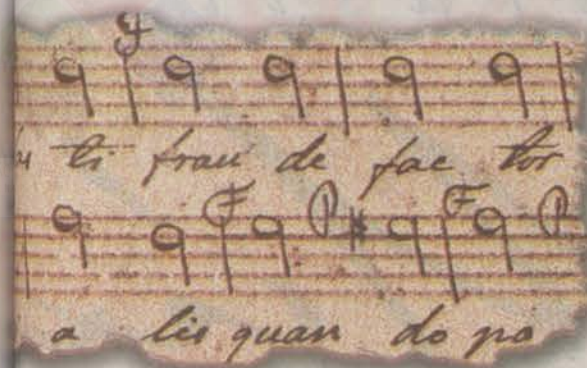 F
ti frau de fac tor
F P F P
a lis quan do po